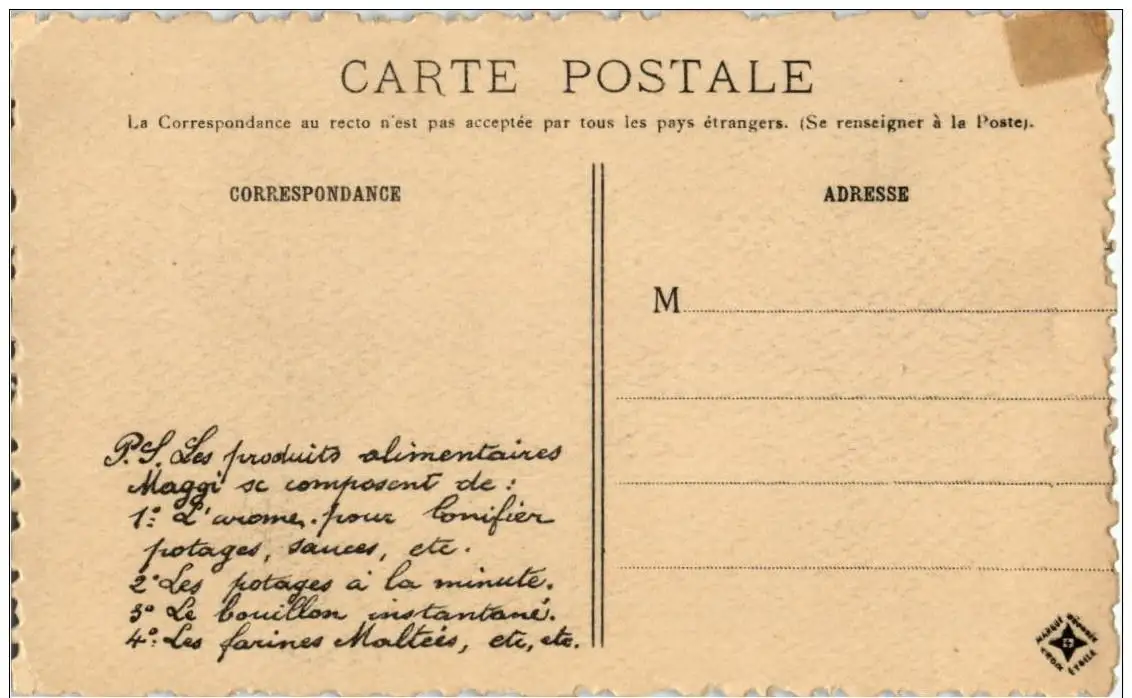 CARTE POSTALE
La Correspondance au recto n'est pas acceptée par tous les pays étrangers. (Se renseigner à la Poste).
CORRESPONDANCE
ADRESSE
M
P.S. Les produits alimentaires
Maggi se composent de :
1º: L'arome. pour bonifier
potages, sauces, etc.
2º Les potages à la minute.
3º Le bouillon instantané.
4º: Les farines Maltées, etc, etc.
MARQUE
CROIX ÉTOILE